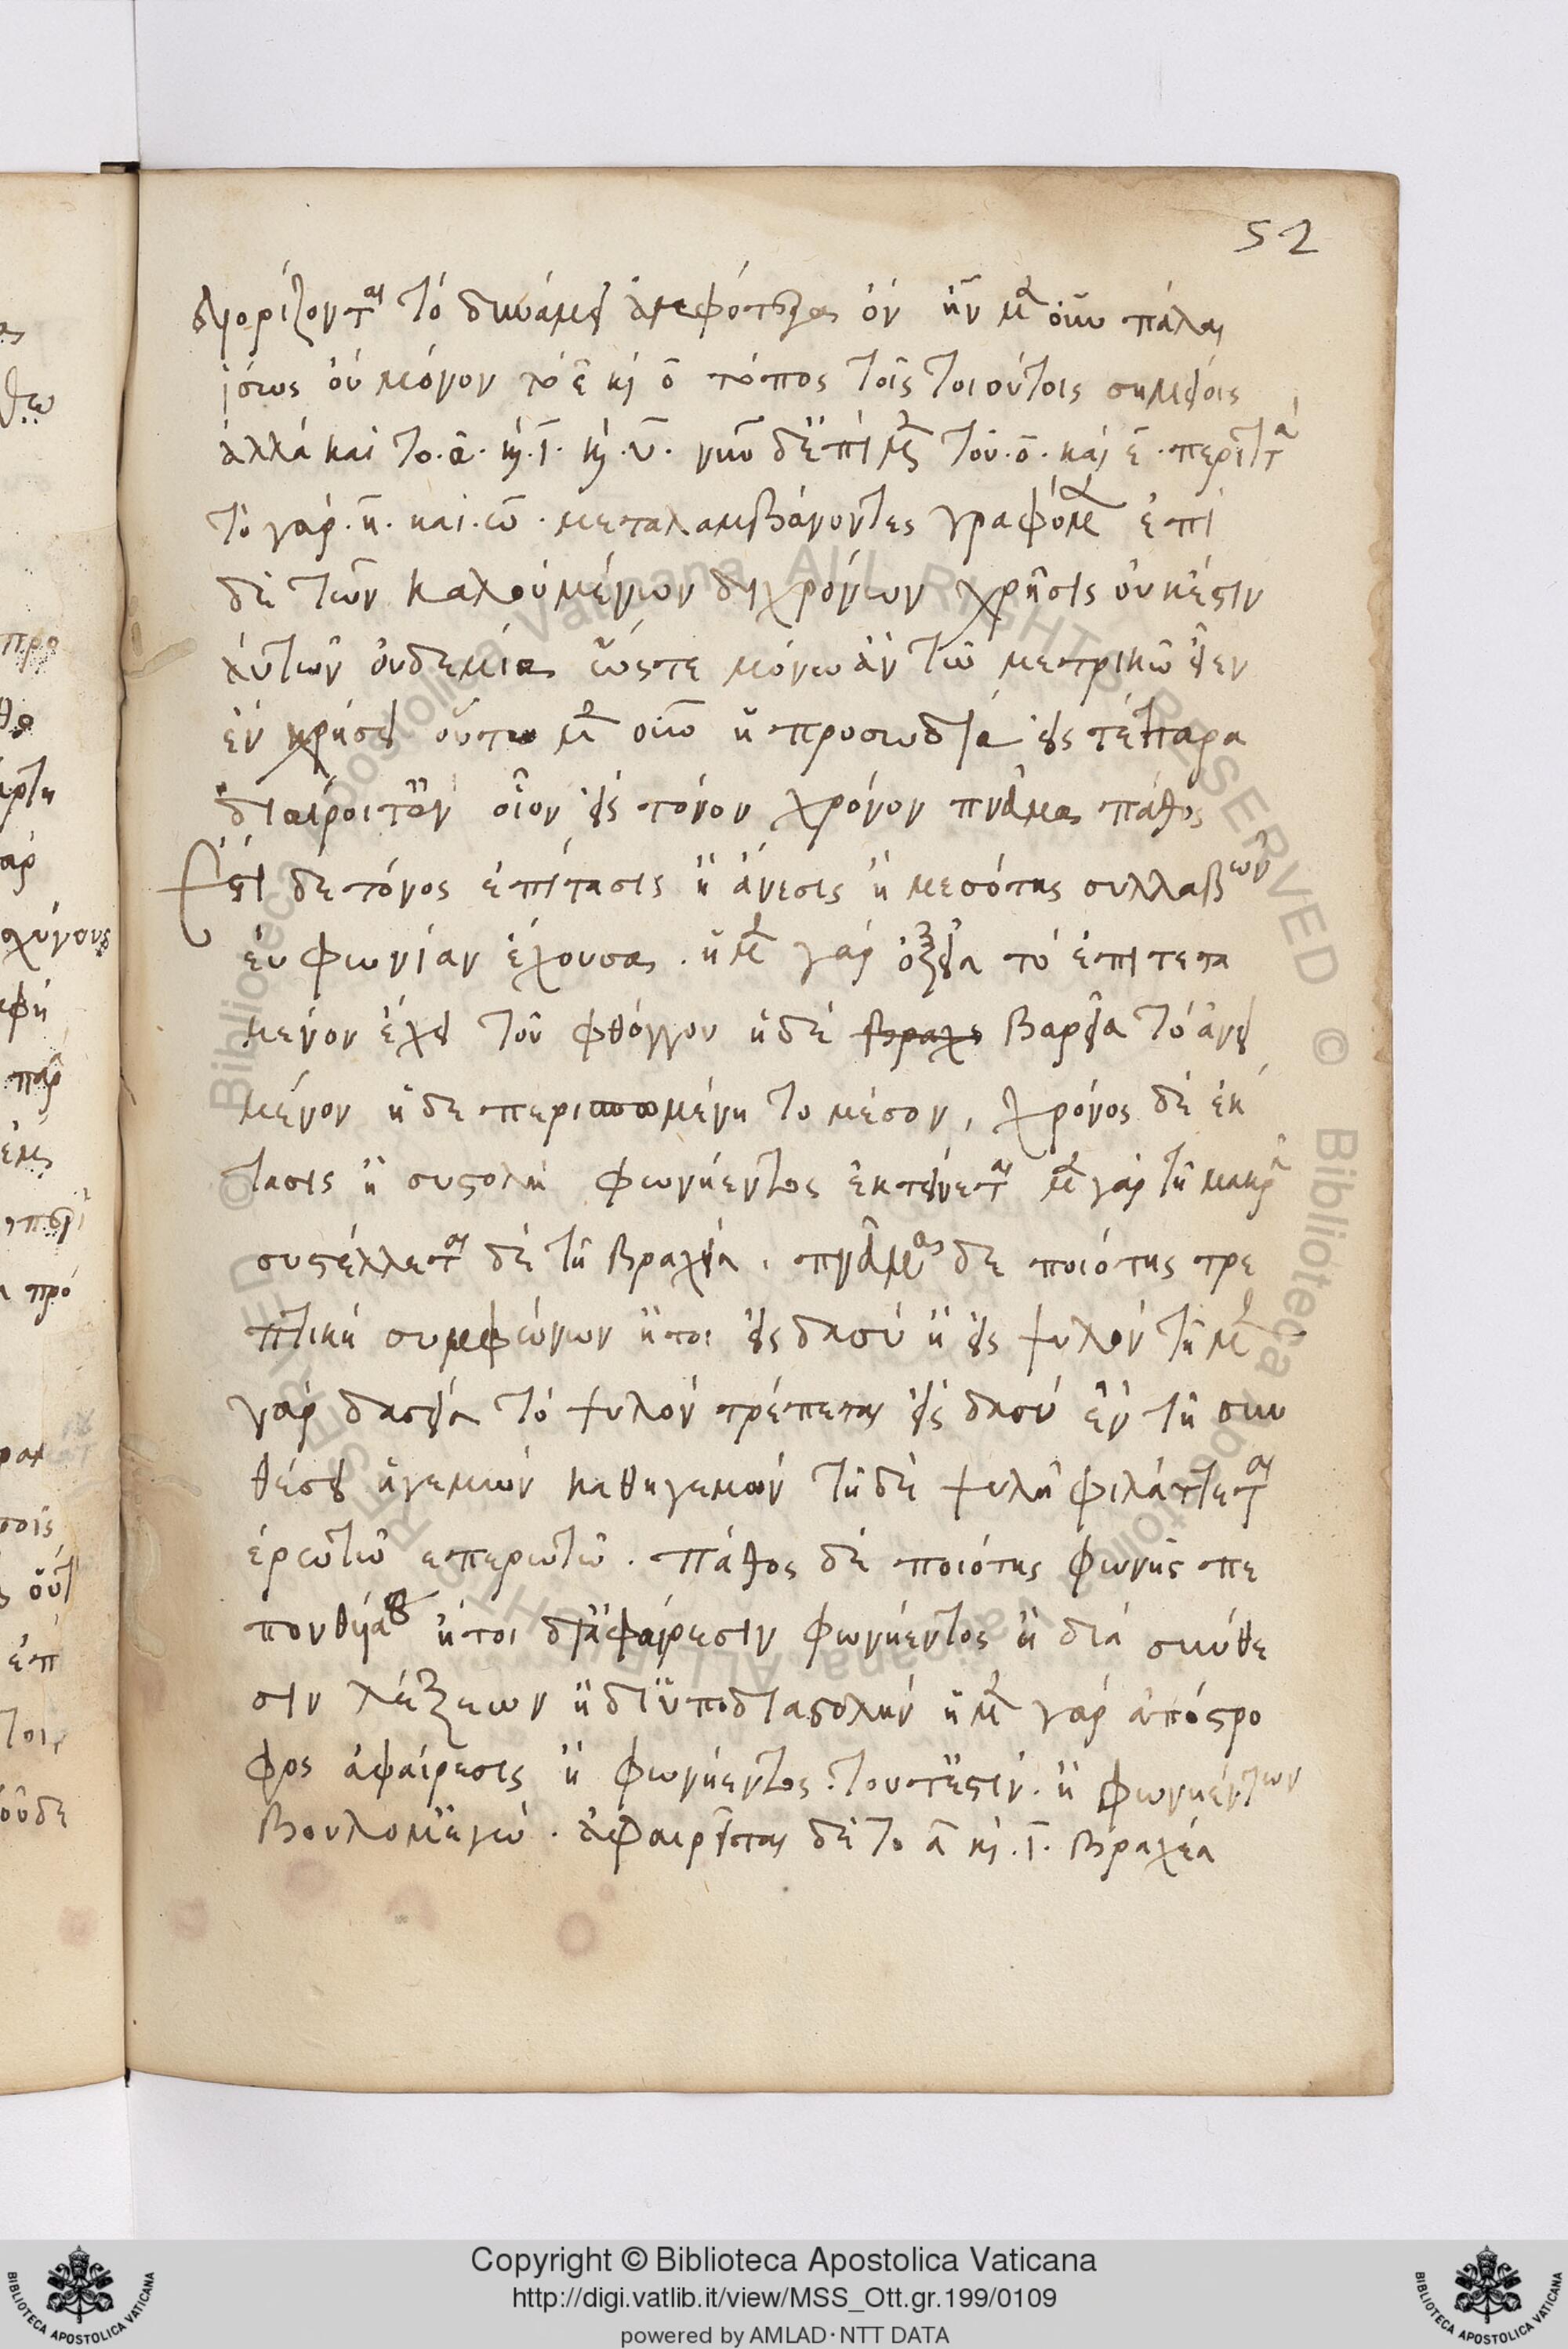 52
διορίζονται τὸ δυνάμει ἀμφότερα ὂν ἦν μὲν οὖν πάλαι
ἴσως οὐ μόνον τὸ ε̄ κὶ ο̄ τόπος τοῖς τοιούτοις σημείοις
ἀλλὰ καὶ το. α. κὶ. ῑ. κὶ. υ. νῦν δ' ἐπὶ μὲν τοῦ. ο̄. καὶ ε̄. περιττὰ
τὸ γὰρ. η̄. καὶ. ω̄. μεταλαμβάνοντες γράφομεν ἐπὶ
δὲ τῶν καλουμένων διχρόνων χρῆσις οὐκέστιν
αὐτῶν οὐδεμία ὥστε μόνω ἂν τῶ μετρικῶ εἶεν
ἐν χρήσει οὕτω μὲν οὖν ἡ προσωδία εἰς τέτταρα
διαιροῖτ' ἂν οἷον εἰς τόνον χρόνον πνεῦμα πάθος
ἔστι δὲ τόνος ἐπίτασις ἢ ἄνεσις ἢ μεσότης συλλαβῶν
εὐφωνίαν ἔχουσα. ἡ μὲν γὰρ ὀξεῖα τὸ ἐπιτετα
μένον ἔχει τοῦ φθόγγου ἡ δὲ βραχε βαρεῖα τὸ ἀνει
μένον ἡ δε περισπωμένη το μέσον, χρόνος δὲ ἔκ
τασις ἢ συστολὴ φωνήεντος ἐκτείνεται μὲν γὰρ τῆ μακρᾶ
συστέλλεται δὲ τῆ βραχεία. πνεῦμα δε ποιότης τρε
πτικὴ συμφώνων ἤτοι εἰς δασὺ ἢ εἰς ψιλόν τῆ μὲν
γὰρ δασεία τὸ ψιλὸν τρέπεται εἰς δασύ ἐν τῆ συν
θέσει ἡγεμὼν καθηγεμών τῆ δὲ ψιλῆ φιλάττεται
ἐρωτῶ επερωτῶ. πάθος δὲ ποιότης φωνῆς πε
πονθυίας ἤτοι δι' ἀφαίρεσιν φωνήεντος ἢ διὰ σύνθε
σιν λέξεων ἢ δι' ὑποδιαστολήν ἡ μὲν γὰρ ἀπόστρο
φος ἀφαίρεσις ἢ φωνήεντος. τουτέστιν. ἢ φωνηέντων
βουλομ' ἐγώ. ἀφαιρεῖται δὲ το ᾱ κὶ. ῑ. βραχέα
Copyright © Biblioteca Apostolica Vaticana
http://digi.vatlib.it/view/MSS_Ott.gr.199/0109
powered by AMLAD·NTT DATA